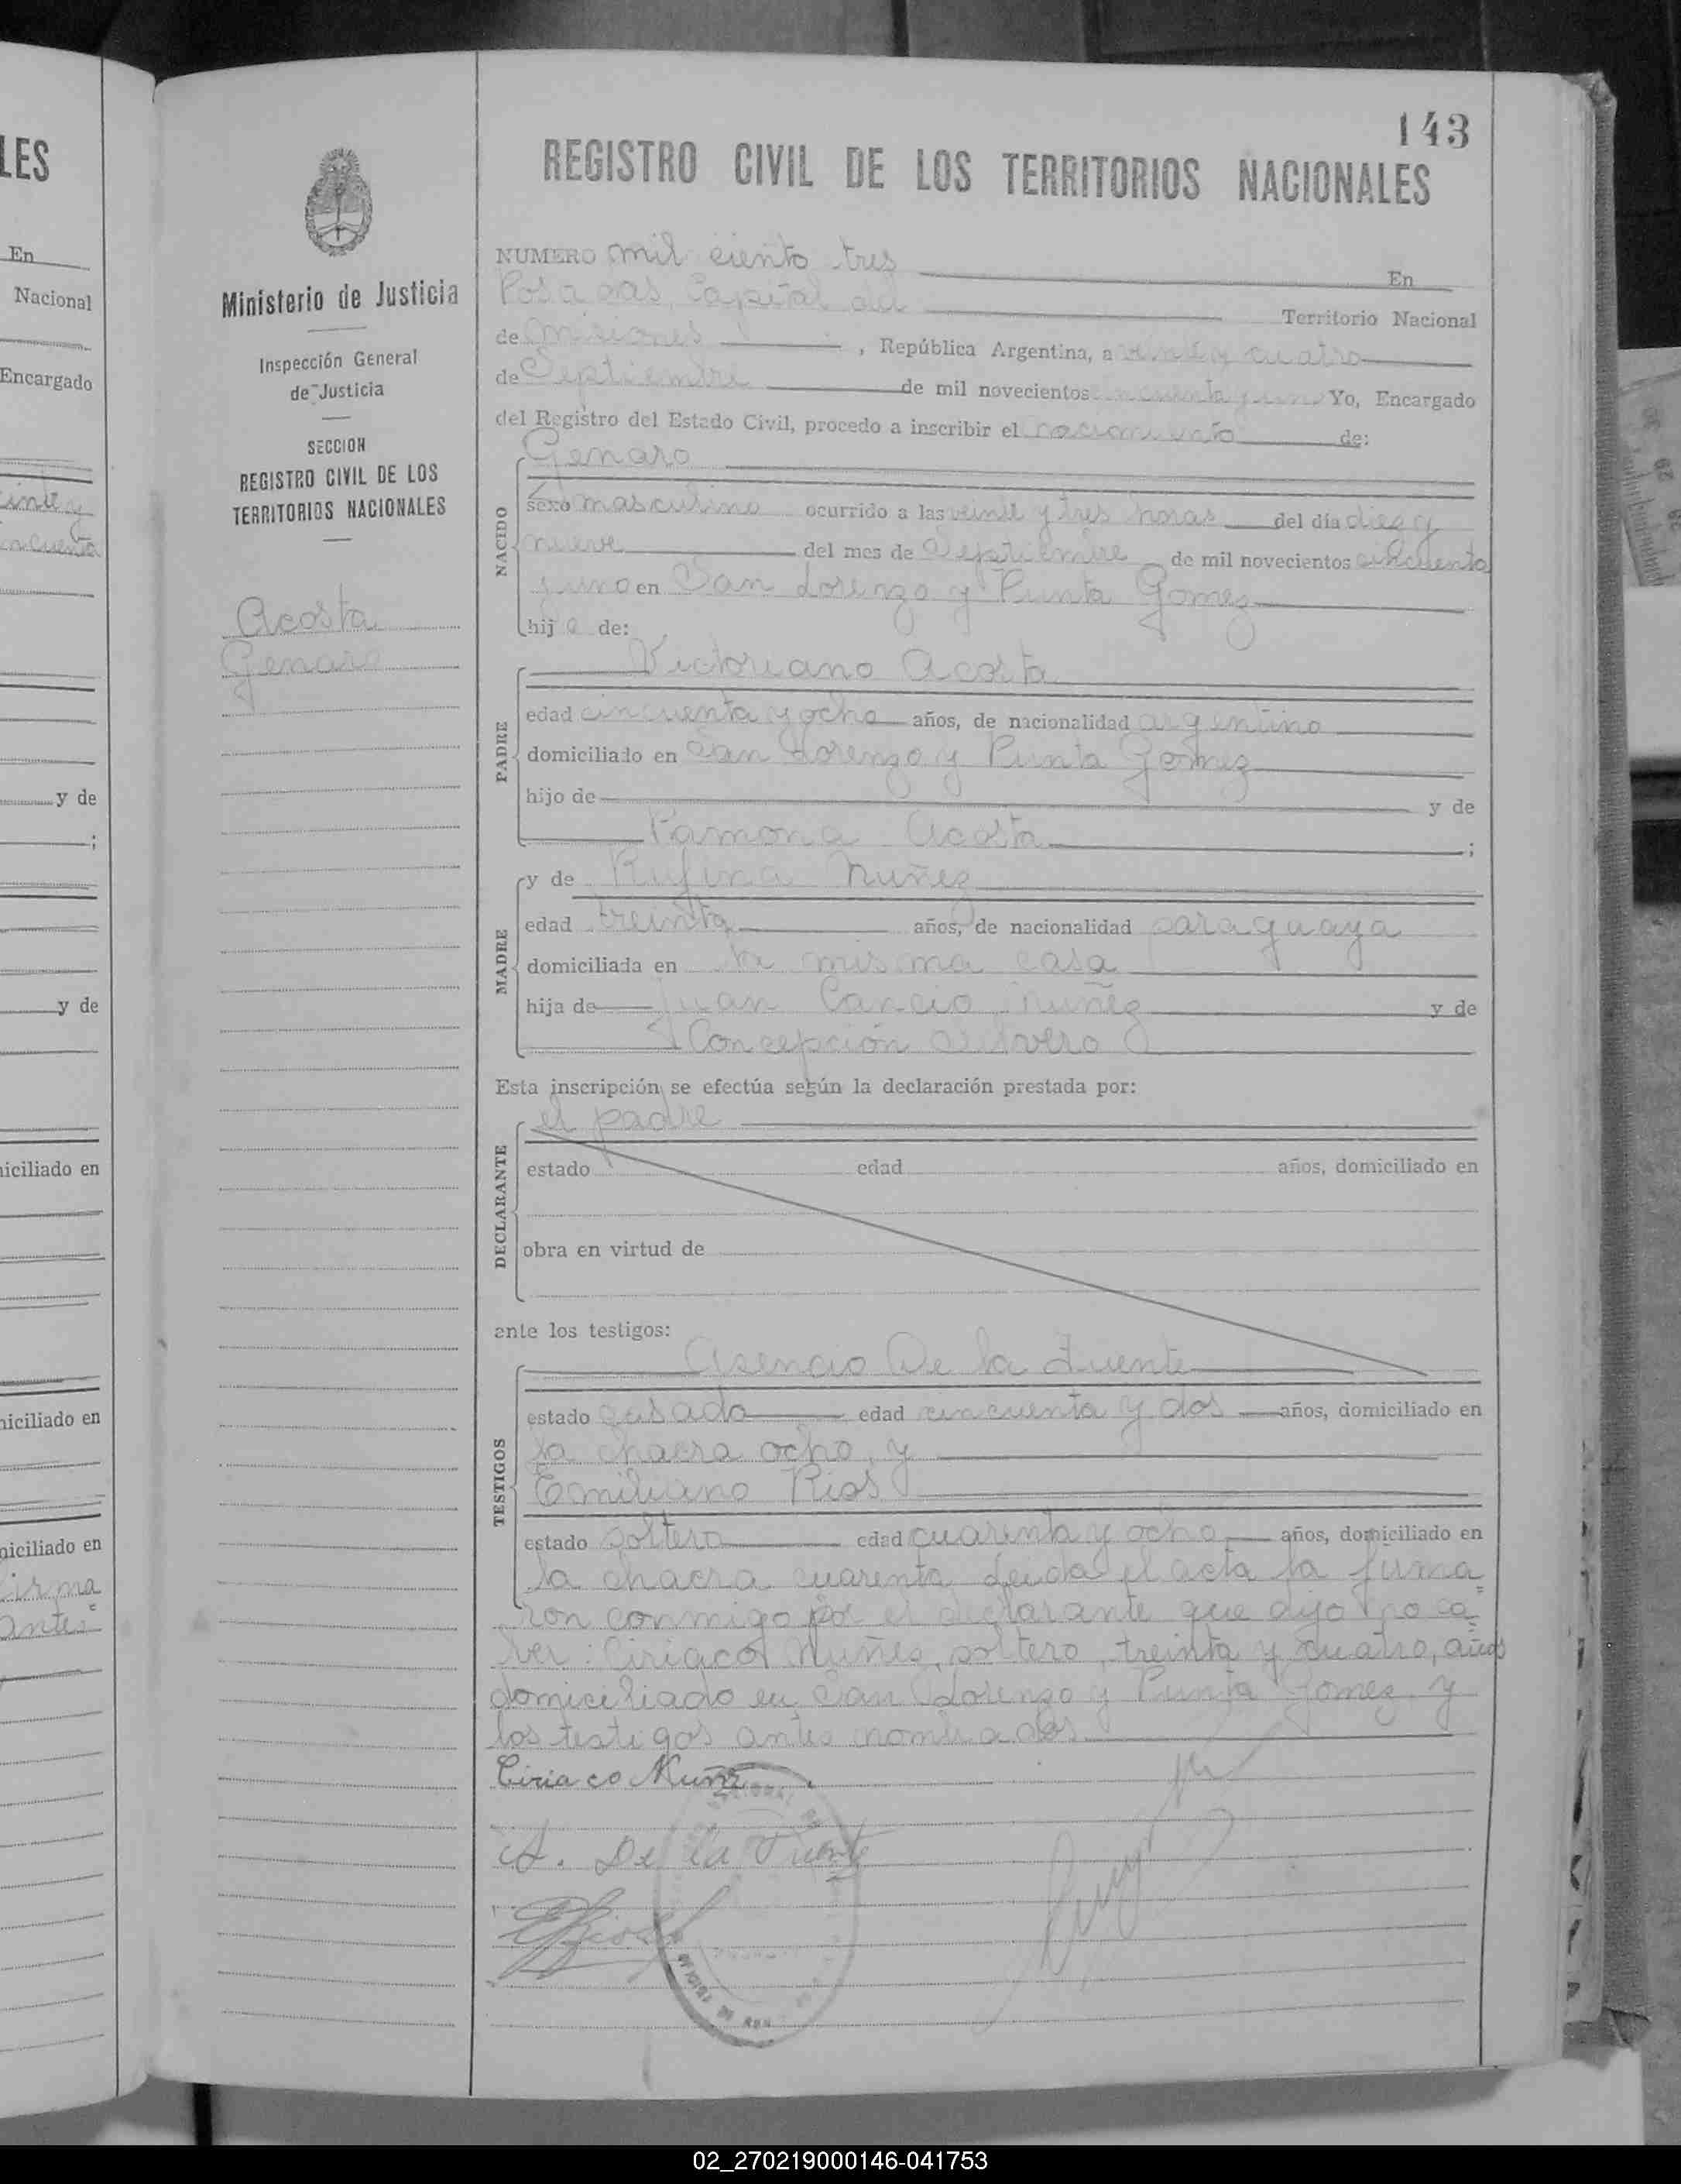 LES
En
Nacional
Encargado
y de
;
y de
niciliado en
niciliado en
niciliado en
firma
antes
Ministerio de Justicia
Inspección General
de Justicia
SECCION
REGISTRO CIVIL DE LOS
TERRITORIOS NACIONALES
Acosta
Genaro
143
REGISTRO CIVIL DE LOS TERRITORIOS NACIONALES
NUMERO mil ciento tres En
Posadas, Capital del Territorio Nacional
de Misiones , República Argentina, a veinte y cuatro
de Septiembre de mil novecientos cincuenta y uno Yo, Encargado
del Registro del Estado Civil, procedo a inscribir el nacimiento de:
Genaro
NACIDO
sexo masculino ocurrido a las veinte y tres horas del día diez y
nueve del mes de Septiembre de mil novecientos cincuenta
y uno en San Lorenzo y Punta Gomez
hijo de:
Victoriano Acosta
PADRE
edad cincuenta y ocho años, de nacionalidad argentino
domiciliado en San Lorenzo y Punta Gomez
hijo de y de
Ramona Acosta ;
y de Rufina Nuñez
MADRE
edad treinta años, de nacionalidad paraguaya
domiciliada en la misma casa
hija de Juan Cancio Nuñez y de
Concepción
Esta inscripción se efectúa según la declaración prestada por:
el padre
DECLARANTE
estado edad años, domiciliado en
obra en virtud de
ante los testigos:
Asencio De la Fuente
TESTIGOS
estado casado edad cincuenta y dos años, domiciliado en
la chacra ocho, y
Emiliano Rios
estado soltero edad cuarenta y ocho años, domiciliado en
la chacra cuarenta. Leida el acta la firma=
ron conmigo por el declarante que dijo no sa=
ber: Ciriaco Nuñez, soltero, treinta y cuatro, años
domiciliado en San Lorenzo y Punta Gomez y
los testigos antes nombrados
Ciriaco Nuñez
A. De la Fuente
ERios
02_270219000146-041753